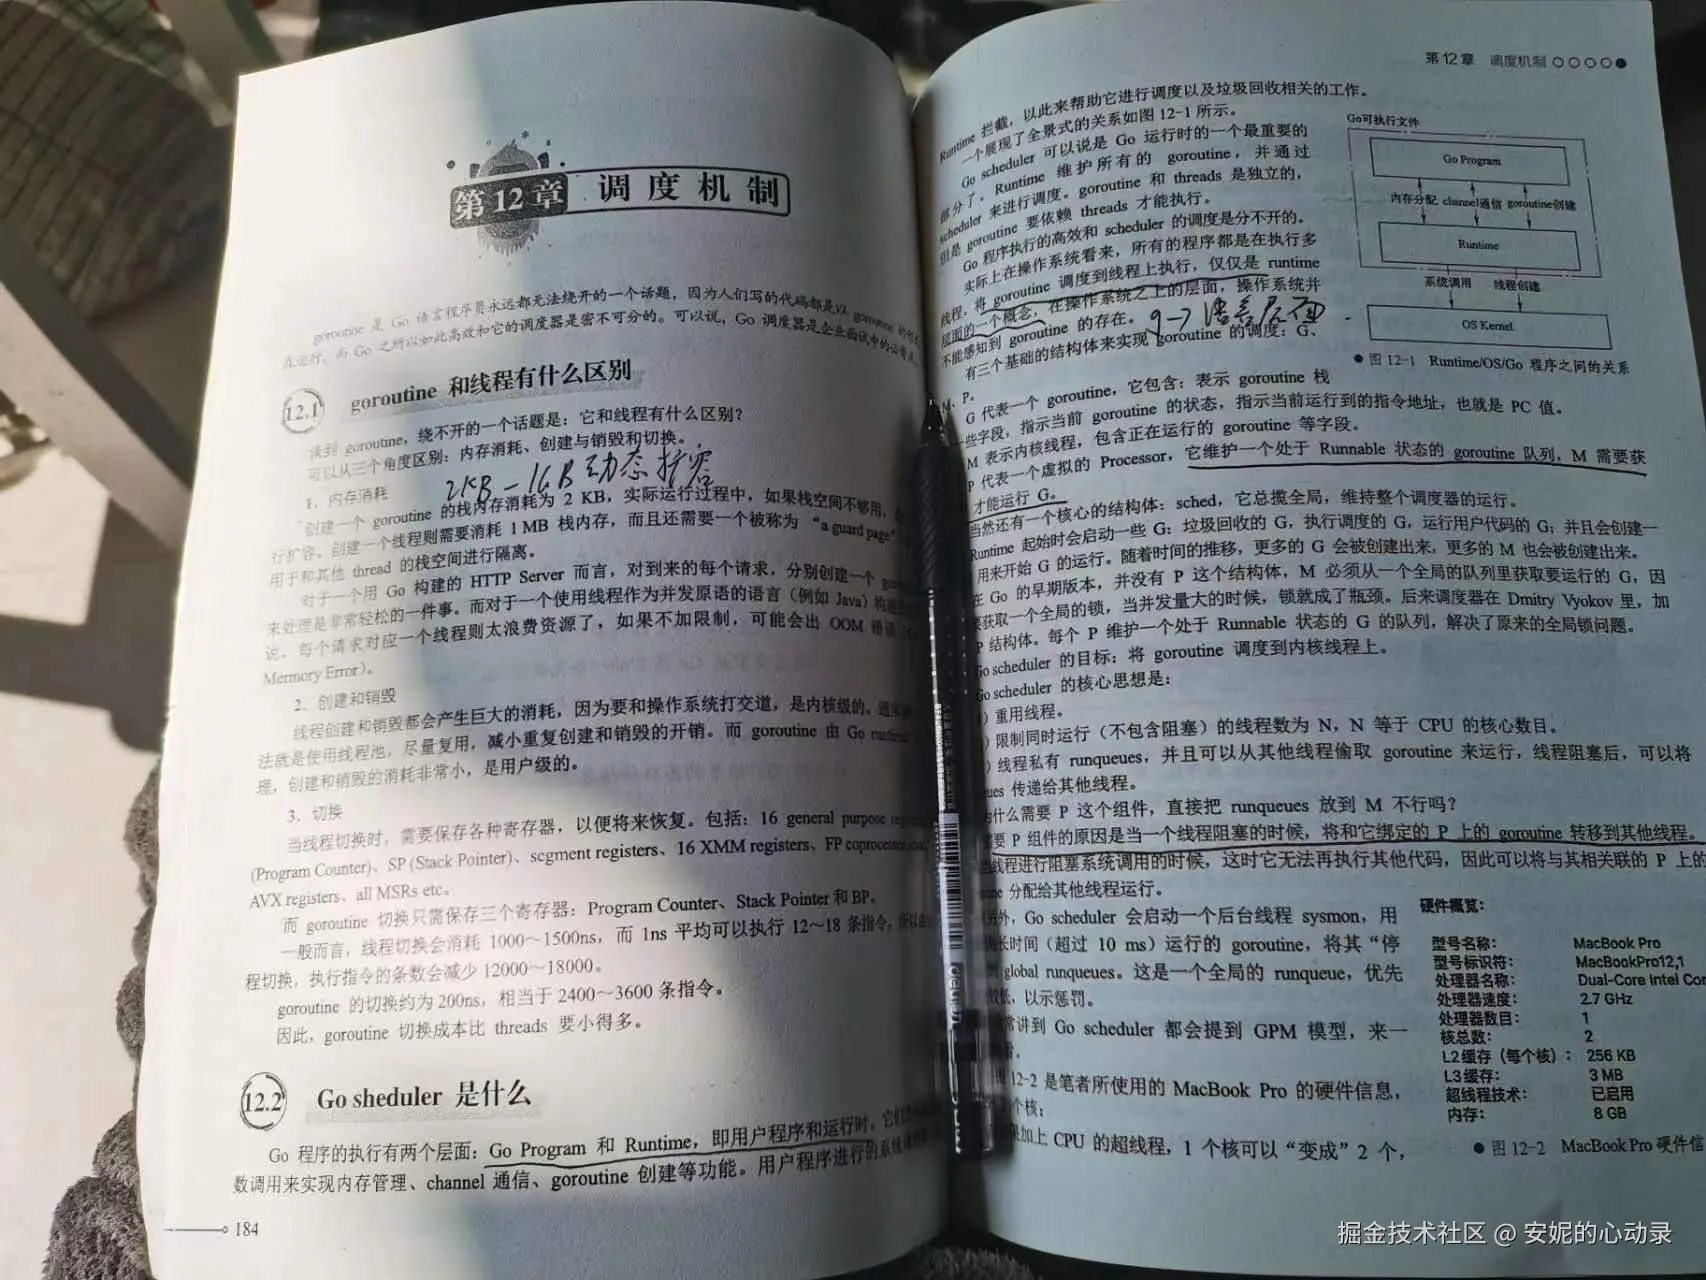 第12章 调度机制
goroutine 是 Go 语言程序员永远都无法绕开的一个话题，因为人们写的代码都是以 goroutine 的
在运行。而 Go 之所以如此高效和它的调度器是密不可分的。可以说，Go 调度器是企业面试中的必
12.1 goroutine 和线程有什么区别
谈到 goroutine，绕不开的一个话题是：它和线程有什么区别？
可以从三个角度区别：内存消耗、创建与销毁和切换。
1．内存消耗
2KB-1GB动态扩容
创建一个 goroutine 的栈内存消耗为 2 KB，实际运行过程中，如果栈空间不够用，
行扩容。创建一个线程则需要消耗 1 MB 栈内存，而且还需要一个被称为 “a guard page”
用于和其他 thread 的栈空间进行隔离。
对于一个用 Go 构建的 HTTP Server 而言，对到来的每个请求，分别创建一个
来处理是非常轻松的一件事。而对于一个使用线程作为并发原语的语言（例如 Java）
说，每个请求对应一个线程则太浪费资源了，如果不加限制，可能会出 OOM 错误
Mermory Error）。
2．创建和销毁
线程创建和销毁都会产生巨大的消耗，因为要和操作系统打交道，是内核级的。
法就是使用线程池，尽量复用，减小重复创建和销毁的开销。而 goroutine 由 Go
理，创建和销毁的消耗非常小，是用户级的。
3．切换
当线程切换时，需要保存各种寄存器，以便将来恢复。包括：16 general purpose
(Program Counter)、SP (Stack Pointer)、scgment registers、16 XMM registers、FP coprocessor
AVX registers、all MSRs etc。
而 goroutine 切换只需保存三个寄存器：Program Counter、Stack Pointer 和 BP。
一般而言，线程切换会消耗 1000～1500ns，而 1ns 平均可以执行 12～18 条指令，
程切换，执行指令的条数会减少 12000～18000。
goroutine 的切换约为 200ns，相当于 2400～3600 条指令。
因此，goroutine 切换成本比 threads 要小得多。
12.2 Go sheduler 是什么
Go 程序的执行有两个层面：Go Program 和 Runtime，即用户程序和运行时。
数调用来实现内存管理、channel 通信、goroutine 创建等功能。用户程序进行的系统
184
第 12 章 调度机制
Runtime 拦截，以此来帮助它进行调度以及垃圾回收相关的工作。
一个展现了全景式的关系如图 12-1 所示。
Go scheduler 可以说是 Go 运行时的一个最重要的
部分了。Runtime 维护所有的 goroutine，并通过
scheduler 来进行调度。goroutine 和 threads 是独立的，
但是 goroutine 要依赖 threads 才能执行。
Go 程序执行的高效和 scheduler 的调度是分不开的。
实际上在操作系统看来，所有的程序都是在执行多
线程，将 goroutine 调度到线程上执行，仅仅是 runtime
层面的一个概念，在操作系统之上的层面，操作系统并
不能感知到 goroutine 的存在。
g→语言层面
有三个基础的结构体来实现 goroutine 的调度：G、
M、P。
Go可执行文件
Go Program
内存分配 channel通信 goroutine创建
Runtime
系统调用 线程创建
OS Kernel
● 图 12-1 Runtime/OS/Go 程序之间的关系
G 代表一个 goroutine，它包含：表示 goroutine 栈
一些字段，指示当前 goroutine 的状态，指示当前运行到的指令地址，也就是 PC 值。
M 表示内核线程，包含正在运行的 goroutine 等字段。
P 代表一个虚拟的 Processor，它维护一个处于 Runnable 状态的 goroutine 队列，M 需要获
才能运行 G。
当然还有一个核心的结构体：sched，它总揽全局，维持整个调度器的运行。
Runtime 起始时会启动一些 G：垃圾回收的 G，执行调度的 G，运行用户代码的 G；并且会创建一
用来开始 G 的运行。随着时间的推移，更多的 G 会被创建出来，更多的 M 也会被创建出来。
在 Go 的早期版本，并没有 P 这个结构体，M 必须从一个全局的队列里获取要运行的 G，因
要获取一个全局的锁，当并发量大的时候，锁就成了瓶颈。后来调度器在 Dmitry Vyokov 里，加
P 结构体。每个 P 维护一个处于 Runnable 状态的 G 的队列，解决了原来的全局锁问题。
Go scheduler 的目标：将 goroutine 调度到内核线程上。
Go scheduler 的核心思想是：
）重用线程。
）限制同时运行（不包含阻塞）的线程数为 N，N 等于 CPU 的核心数目。
）线程私有 runqueues，并且可以从其他线程偷取 goroutine 来运行，线程阻塞后，可以将
ues 传递给其他线程。
什么需要 P 这个组件，直接把 runqueues 放到 M 不行吗？
要 P 组件的原因是当一个线程阻塞的时候，将和它绑定的 P 上的 goroutine 转移到其他线程。
线程进行阻塞系统调用的时候，这时它无法再执行其他代码，因此可以将与其相关联的 P 上的
ine 分配给其他线程运行。
另外，Go scheduler 会启动一个后台线程 sysmon，用
长时间（超过 10 ms）运行的 goroutine，将其“停
global runqueues。这是一个全局的 runqueue，优先
低，以示惩罚。
常讲到 Go scheduler 都会提到 GPM 模型，来一
看。
图 12-2 是笔者所使用的 MacBook Pro 的硬件信息，
个核；
果加上 CPU 的超线程，1 个核可以“变成”2 个，
硬件概览：
型号名称： MacBook Pro
型号标识符： MacBookPro12,1
处理器名称： Dual-Core Intel Cor
处理器速度： 2.7 GHz
处理器数目： 1
核总数： 2
L2缓存（每个核）： 256 KB
L3缓存： 3 MB
超线程技术： 已启用
内存： 8 GB
● 图 12-2 MacBook Pro 硬件信
掘金技术社区 @ 安妮的心动录